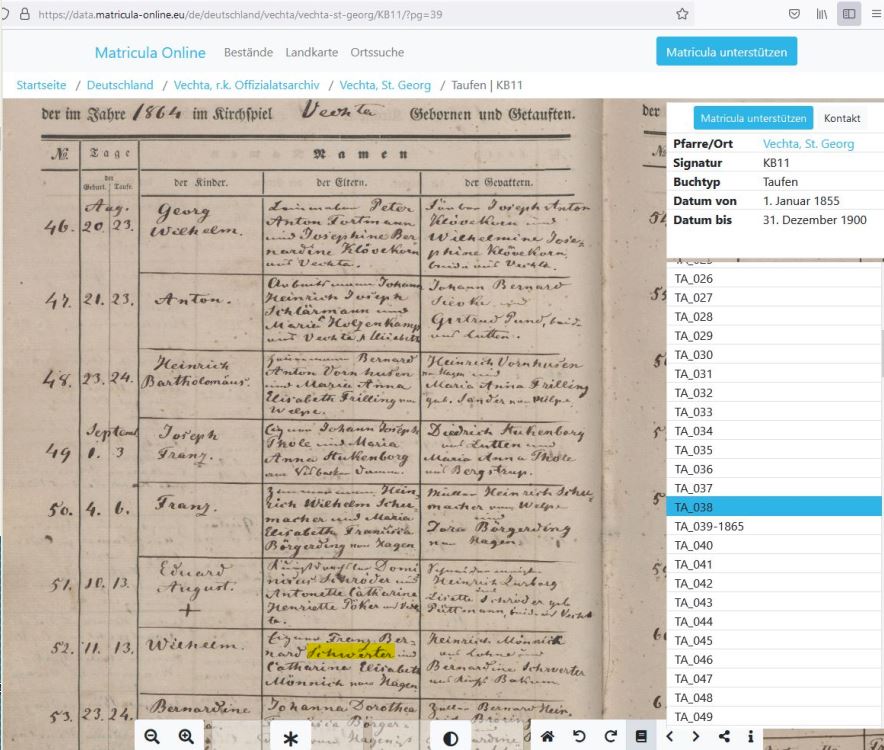 https://data.matricula-online.eu/de/deutschland/vechta/vechta-st-georg/KB11/?pg=39
Matricula Online Bestände Landkarte Ortssuche Matricula unterstützen
Startseite / Deutschland / Vechta, r.k. Offizialatsarchiv / Vechta, St. Georg / Taufen | KB11
der im Jahre 1864 im Kirchspiel Vechta Gebornen und Getauften.
No. Tage Namen
der Geburt. der Taufe. der Kinder. der Eltern. der Gevattern.
Aug.
46. 20. 23. Georg
Wilhelm.
Peter
Anton Fortmann
und Josephine Ber-
nardine Klövekorn
aus Vechta.
Joseph Anton
Klövekorn und
Wilhelmine Jose-
phine Klövekorn,
beide aus Vechta.
47. 21. 23. Anton.
Johann
Heinrich Joseph
Schlärmann und
Maria Holzenkamp
aus Vechta
Johann Bernard
und
Gertrud Pund, beide
aus Lutten.
48. 23. 24. Heinrich
Bartholomäus.
Bernard
Anton Vornhusen
und Maria Anna
Elisabeth Frilling von
Welpe.
Heinrich Vornhusen
von Hagen und
Maria Anna Frilling
geb. Sander von Welpe.
Septemb.
49 1. 3 Joseph
Franz.
Johann Joseph
Thole und Maria
Anna Hukenborg
am
Diedrich Hukenborg
aus Lutten und
Maria Anna Thole
aus Bergstrup.
50. 4. 6. Franz.
Hein-
rich Wilhelm Schu-
macher und Maria
Elisabeth Francisca
Börgerding von Hagen
Müller Heinrich Schu-
macher von Welpe
und
Dora Börgerding
von Hagen.
51. 10. 13. Eduard
August.
Domi-
nicus Schröder und
Antonette Catharine
Henriette Töker
Heinrich
Lisette Schröder geb.
Püttmann, beide aus Vechta
52. 11. 13. Wilhelm.
Franz Ber-
nard Schwerter und
Catharina Elisabeth
Mönnich von Hagen
Heinrich Mönnich
aus Lohne und
Bernardine Schwerter
aus Bakum
53. 23. 24. Bernardine
Johanna Dorothea
Börger-
Zeller Bernard Hein-
rich Bröring
der
No.
Matricula unterstützen Kontakt
Pfarre/Ort Vechta, St. Georg
Signatur KB11
Buchtyp Taufen
Datum von 1. Januar 1855
Datum bis 31. Dezember 1900
TA_025
TA_026
TA_027
TA_028
TA_029
TA_030
TA_031
TA_032
TA_033
TA_034
TA_035
TA_036
TA_037
TA_038
TA_039-1865
TA_040
TA_041
TA_042
TA_043
TA_044
TA_045
TA_046
TA_047
TA_048
TA_049